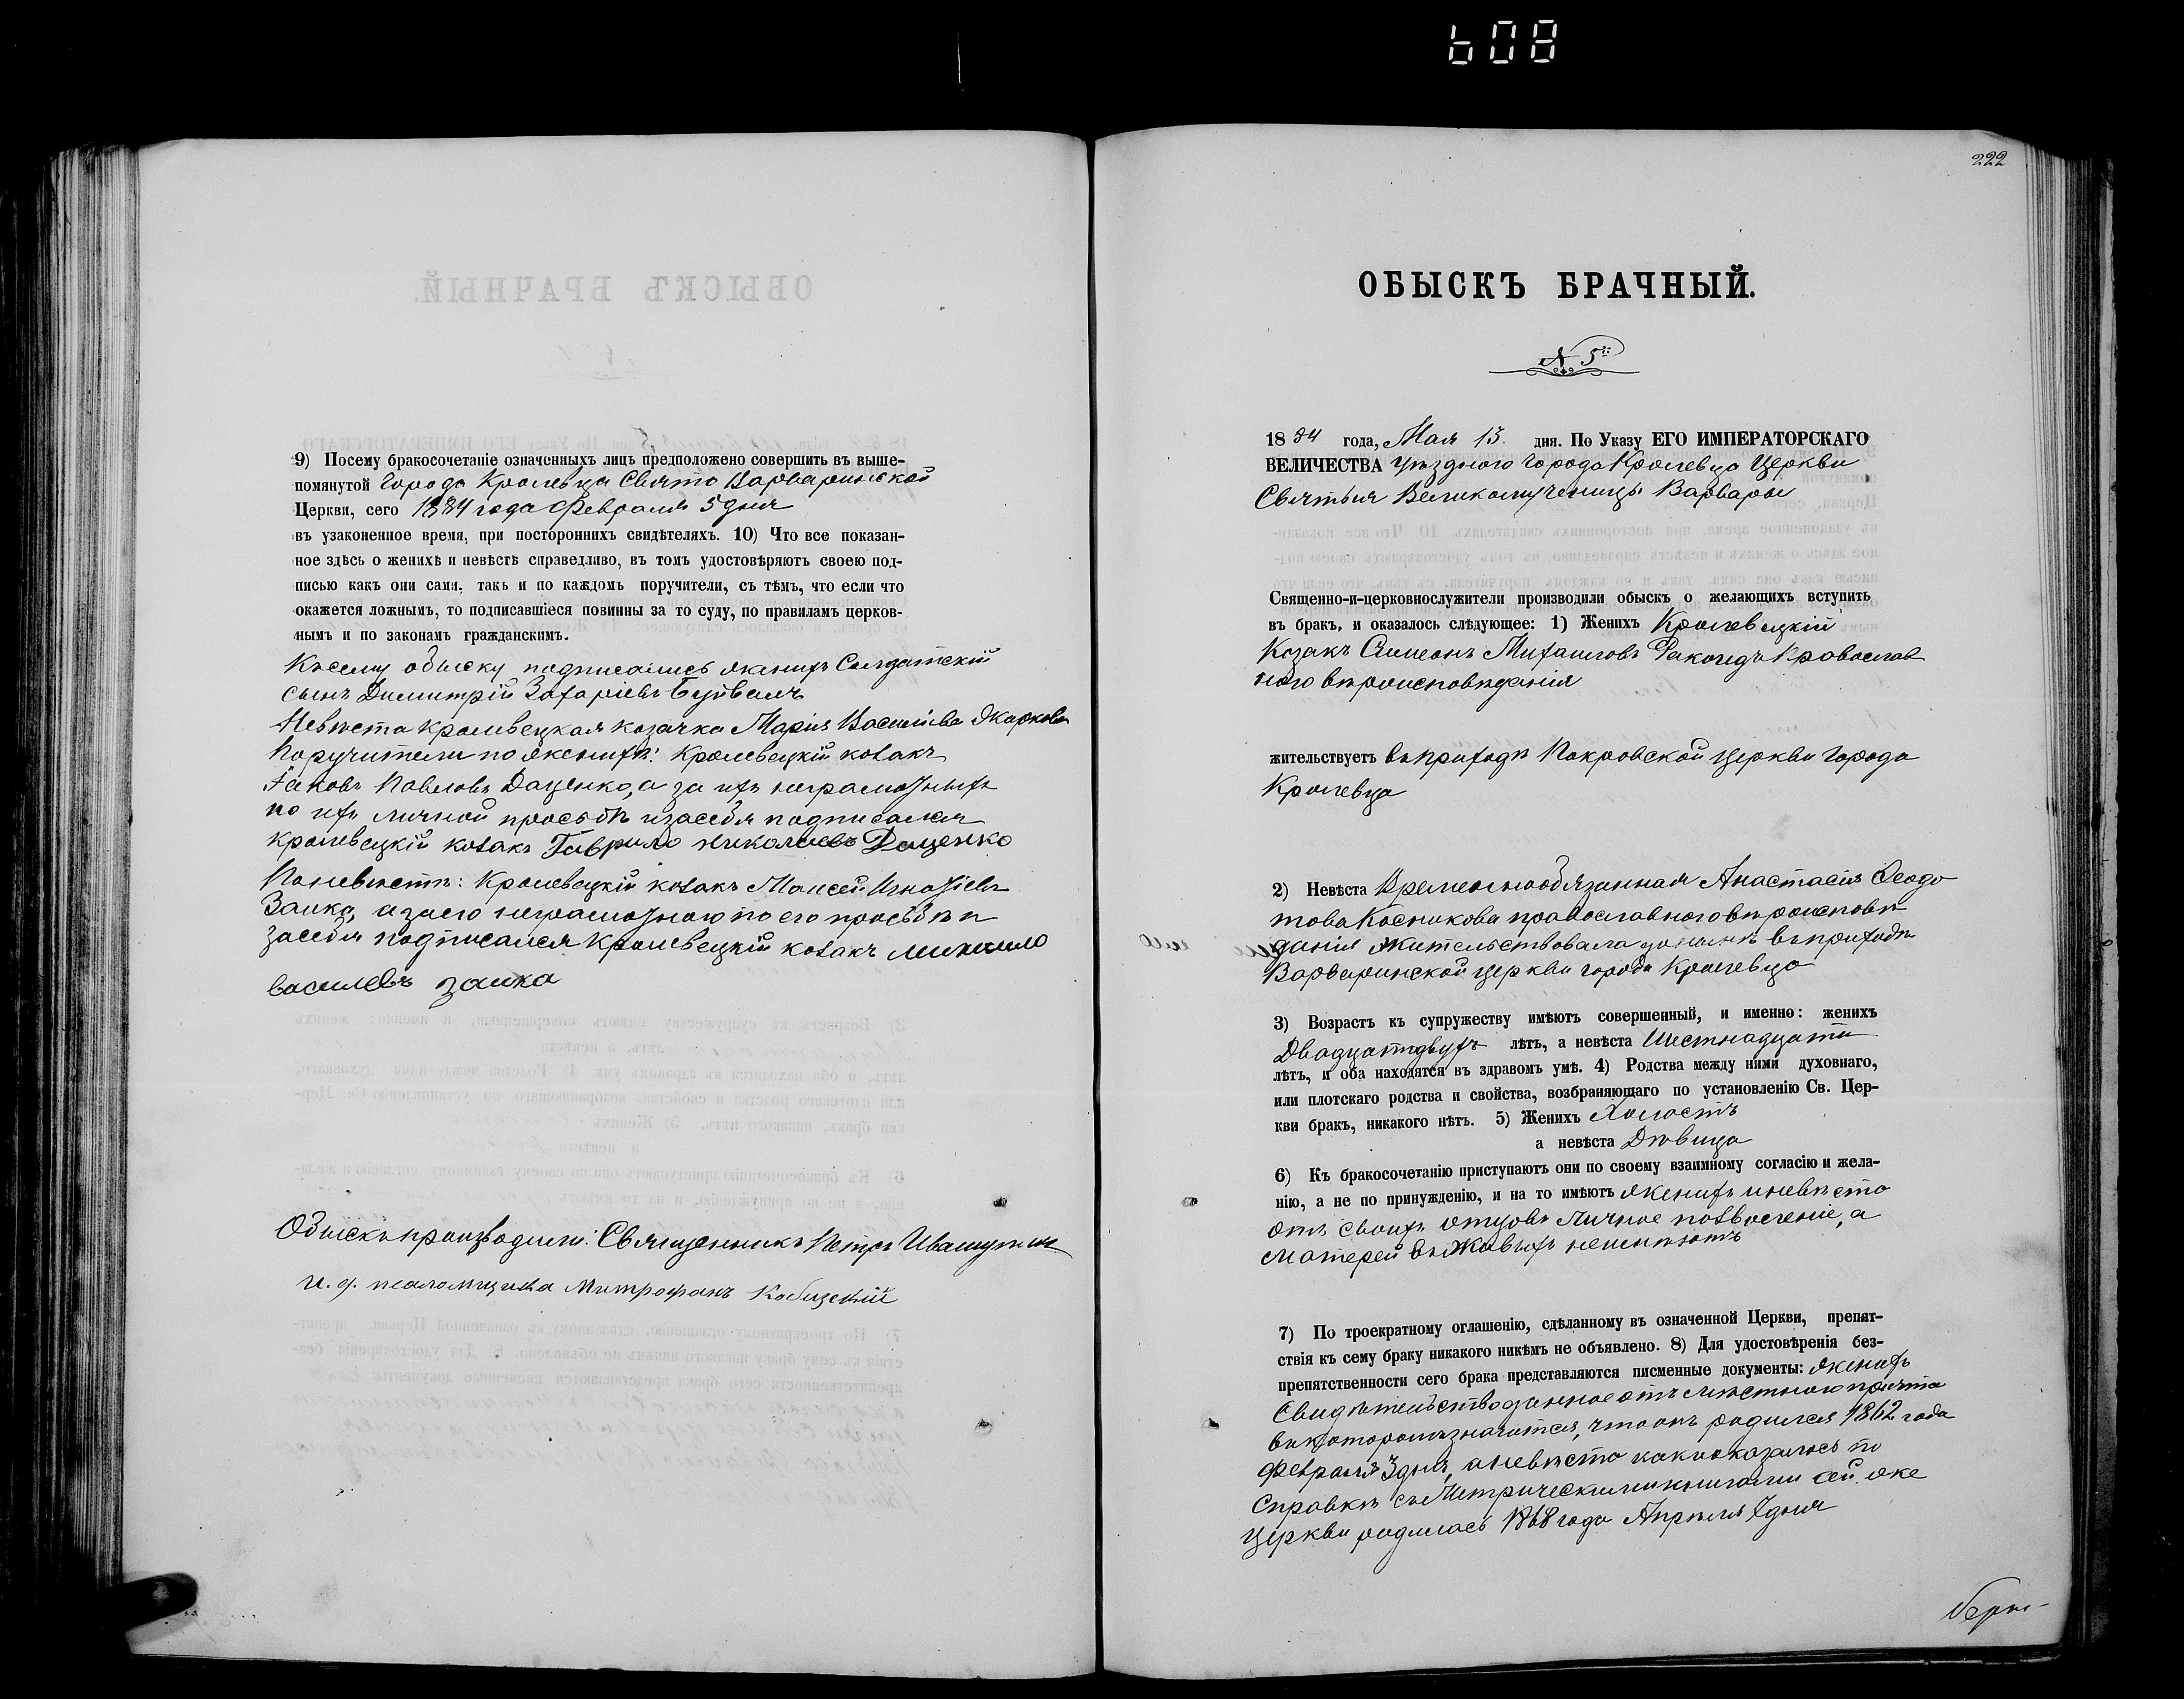 608
9) Посему бракосочетаніе означенныхъ лицъ предположено совершить въ выше-
помянутой Города Кролевца Свято Варваринской
Церкви, сего 1884 года Февраля 5 дня
въ узаконенное время, при постороннихъ свидѣтеляхъ. 10) Что все показан-
ное здѣсь о женихѣ и невѣстѣ справедливо, въ томъ удостовѣряютъ своею под-
писью какъ они сами, такъ и по каждомъ поручители, съ тѣмъ, что если что
окажется ложнымъ, то подписавшіеся повинны за то суду, по правиламъ церков-
нымъ и по законамъ гражданскимъ.
Къ сему обыску подписались женихъ Солдатскій
сынъ Димитрій Захаріевъ
Невѣста Кролевецкая козачка Марія Василіева
Поручители по женихѣ: Кролевецкій козакъ
Іаковъ Павловъ Даценко, а за ихъ неграмотныхъ
по ихъ личной просьбѣ и за себя подписался
кролевецкій козакъ Гаврило Николаевъ Даценко
По невѣстѣ: Кролевецкій козакъ Моисей Игнатіевъ
Заика, а за его неграмотного по его просьбѣ и
за себя подписался Кролевецкій козакъ Михаило
василевъ заика
Обыскъ производили: Священникъ Петръ
и. д. псаломщика Митрофанъ
222
ОБЫСКЪ БРАЧНЫЙ.
№ 5й
1884 года, Мая 13. дня. По Указу ЕГО ИМПЕРАТОРСКАГО
ВЕЛИЧЕСТВА уѣздного города Кролевца Церкви
Святыя Великомученицы Варвары
Священно-и-церковнослужители производили обыскъ о желающихъ вступить
въ бракъ, и оказалось слѣдующее: 1) Женихъ Кролевецкій
Козакъ Симеонъ Михаиловъ православ
ного вѣроисповѣданія
жительствуетъ въ приходѣ Покровской церкви города
Кролевца
2) Невѣста Временнообязанная Анастасія Ѳеодо
това Косникова православного вѣроисповѣ
данія жительствовала донынѣ въ приходѣ
Варваринской церкви города Кролевца
3) Возрастъ къ супружеству имѣютъ совершенный, и именно: женихъ
Двадцатидвухъ лѣтъ, а невѣста Шестнадцати
лѣтъ, и оба находятся въ здравомъ умѣ. 4) Родства между ними духовнаго,
или плотскаго родства и свойства, возбраняющаго по установленію Св. Цер-
кви бракъ, никакого нѣтъ. 5) Женихъ Холостъ
а невѣста Дѣвица
6) Къ бракосочетанію приступаютъ они по своему взаимному согласію и жела-
нію, а не по принужденію, и на то имѣютъ женихъ и невѣста
отъ своихъ отцовъ личное позволеніе, а
матерей въ живыхъ неимѣютъ
7) По троекратному оглашенію, сдѣланному въ означенной Церкви, препят-
ствія къ сему браку никакого никѣмъ не объявлено. 8) Для удостовѣренія без-
препятственности сего брака представляются писменные документы: женихъ
Свидѣтельство данное отъ мѣстного причта
въ которомъ значится, что онъ родился 1862 года
Февраля 3 дня, а невѣста какъ оказалось по
справкѣ съ Метрическими книгами сей же
церкви родилась 1868 года Апрѣля дня